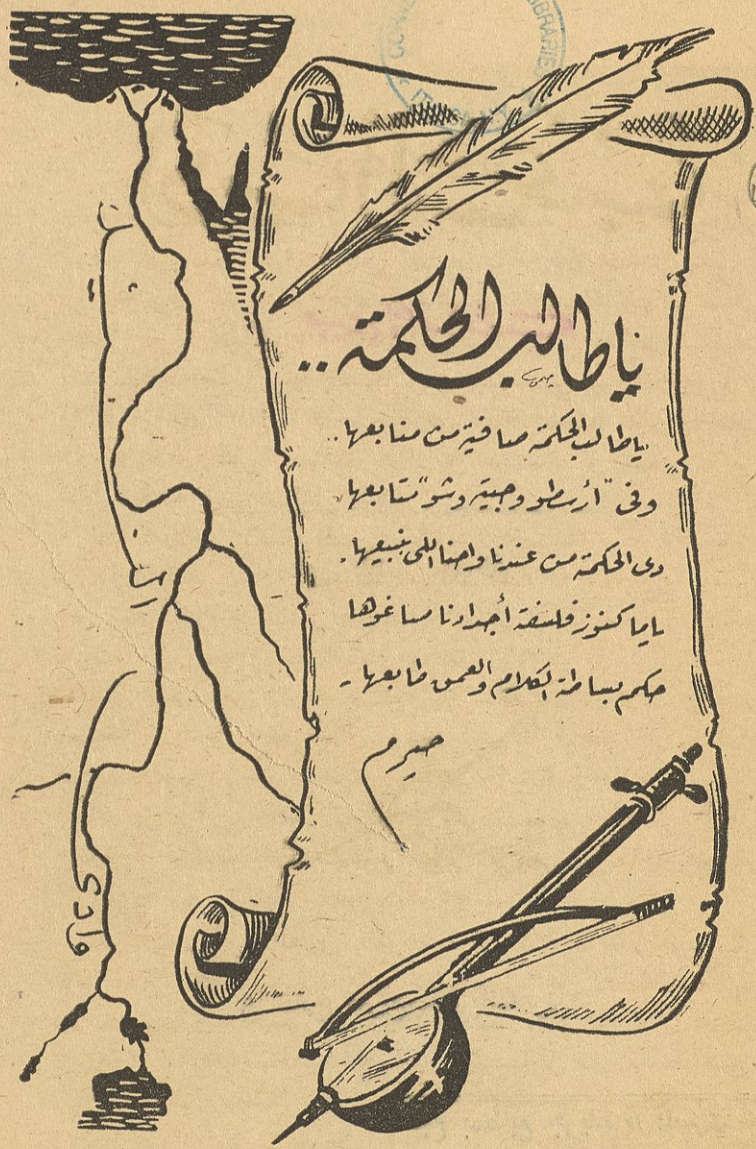 ياطالب الحكمة ..
ياطالب الحكمة صافية من منابعها ..
وفى "أرسطو وجيته وشو" متابعها .
دى الحكمة من عندنا واحنا اللى بنبيعها .
ياما كنوز فلسفة أجدادنا صاغوها
حكم بساطة الكلام والعمق طابعها .
وادى
LIBRARIES